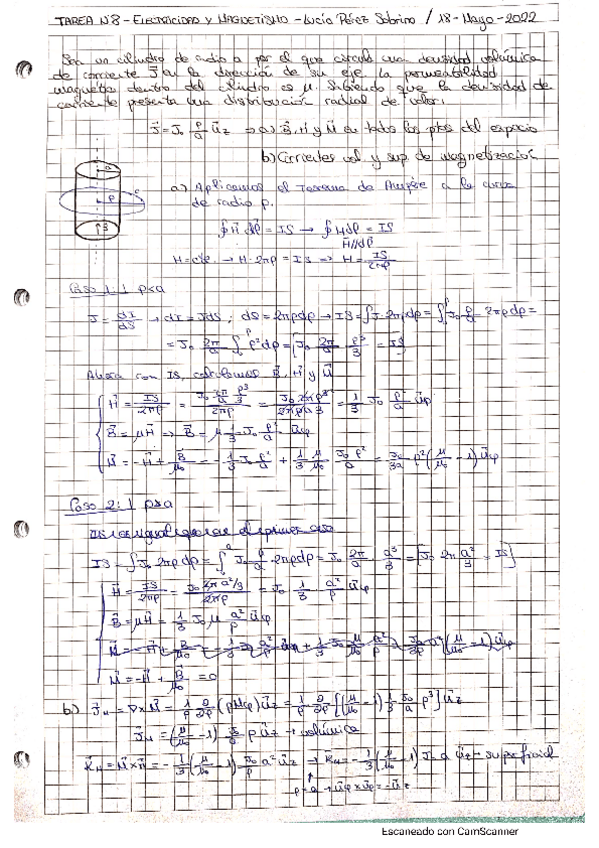 TAREA Nº8 - ELECTRICIDAD Y MAGNETISMO - Lucía Pérez Sobrino / 18-Mayo-2022
Sea un cilindro de radio a por el que circula una densidad volúmica
de corriente J en la dirección de su eje, la permeabilidad
magnética dentro del cilindro es μ. Sabiendo que la densidad de
corriente presenta una distribución radial de valor:
J⃗ = J₀ ρ/a u⃗z ⇒ a) B⃗, H⃗ y M⃗ en todos los ptos del espacio
b) Corrientes vol. y sup. de magnetización
a) Aplicamos el Teorema de Ampère a la curva
de radio ρ.
∮H⃗ dl⃗ = IS → ∮Hdl = IS
H//dl
H = cte. → H·2πρ = IS ⇒ H = IS/2πρ
Caso 1: ρ<a
J = dI/dS → dI = JdS ; dS = 2πρdρ → IS = ∫J·2πρdρ = ∫₀^ρ J₀ ρ/a 2πρdρ =
= J₀ 2π/a ∫₀^ρ ρ²dρ = [J₀ 2π/a ρ³/3 = IS]
Ahora con IS, calculamos B⃗, H⃗ y M⃗
H⃗ = IS/2πρ = J₀ 2π/a ρ³/3 / 2πρ = J₀ 2πρ³/2πρa3 = 1/3 J₀ ρ²/a u⃗φ
B⃗ = μH⃗ ⇒ B⃗ = μ 1/3 J₀ ρ²/a u⃗φ
M⃗ = -H⃗ + B⃗/μ₀ = -1/3 J₀ ρ²/a + 1/3 μ/μ₀ J₀ρ²/a = J₀/3a ρ²(μ/μ₀ - 1) u⃗φ
Caso 2: ρ>a
IS = ∫J₀ 2πρdρ = ∫₀^a J₀ ρ/a 2πρdρ = J₀ 2π/a a³/3 = [J₀ 2π a²/3 = IS]
H⃗ = IS/2πρ = J₀2πa²/3 / 2πρ = J₀ 1/3 a²/ρ u⃗φ
B⃗ = μH⃗ = 1/3 J₀ μ a²/ρ u⃗φ
M⃗ = -H⃗ + B⃗/μ₀ = 0
b) J⃗M = ∇×M⃗ = 1/ρ ∂/∂ρ (ρMφ) u⃗z = 1/ρ ∂/∂ρ [(μ/μ₀ - 1) 1/3 J₀/a ρ³] u⃗z
J⃗M = (μ/μ₀ - 1) J₀/a ρ u⃗z → volúmica
K⃗M = M⃗×n⃗ = -1/3 (μ/μ₀ - 1) J₀/ρ a² u⃗z → K⃗M = -1/3 (μ/μ₀ - 1) J₀ a u⃗z → superficial
ρ=a → u⃗φ×u⃗ρ = -u⃗z
Escaneado con CamScanner